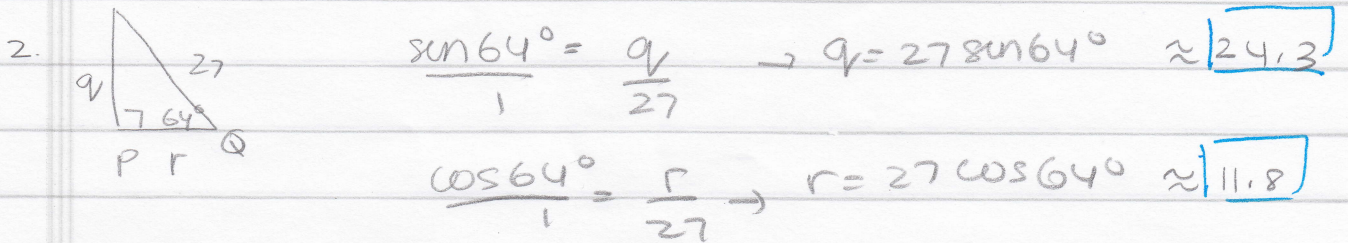 2.
q
27
64°
P r Q
sin64°/1 = q/27 → q = 27 sin64° ≈ 24.3
cos64°/1 = r/27 → r = 27 cos64° ≈ 11.8